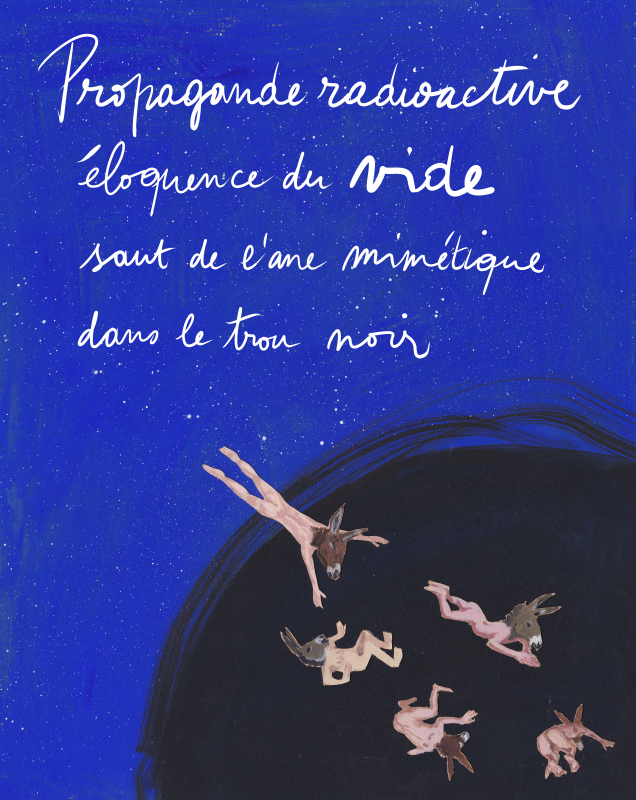 Propagande radioactive
éloquence du vide
saut de l'ane mimétique
dans le trou noir